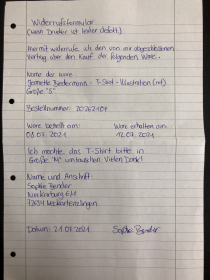 Widerrufsformular
(mein Drucker ist leider defekt)
Hiermit widerrufe ich den von mir abgeschlossenen
Vertrag über den Kauf der folgenden Ware.
Name der Ware
Jeanette Biedermann - T-Shirt - Illustration (rot)
Größe "S"
Bestellnummer: 20262107
Ware bestellt am: Ware erhalten am:
08.07.2021 12.07.2021
Ich möchte das T-Shirt bitte in
Größe "M" umtauschen. Vielen Dank!
Name und Anschrift:
Sophie Bender
72654 Neckartenzlingen
Datum: 21.07.2021 Sophie Bender